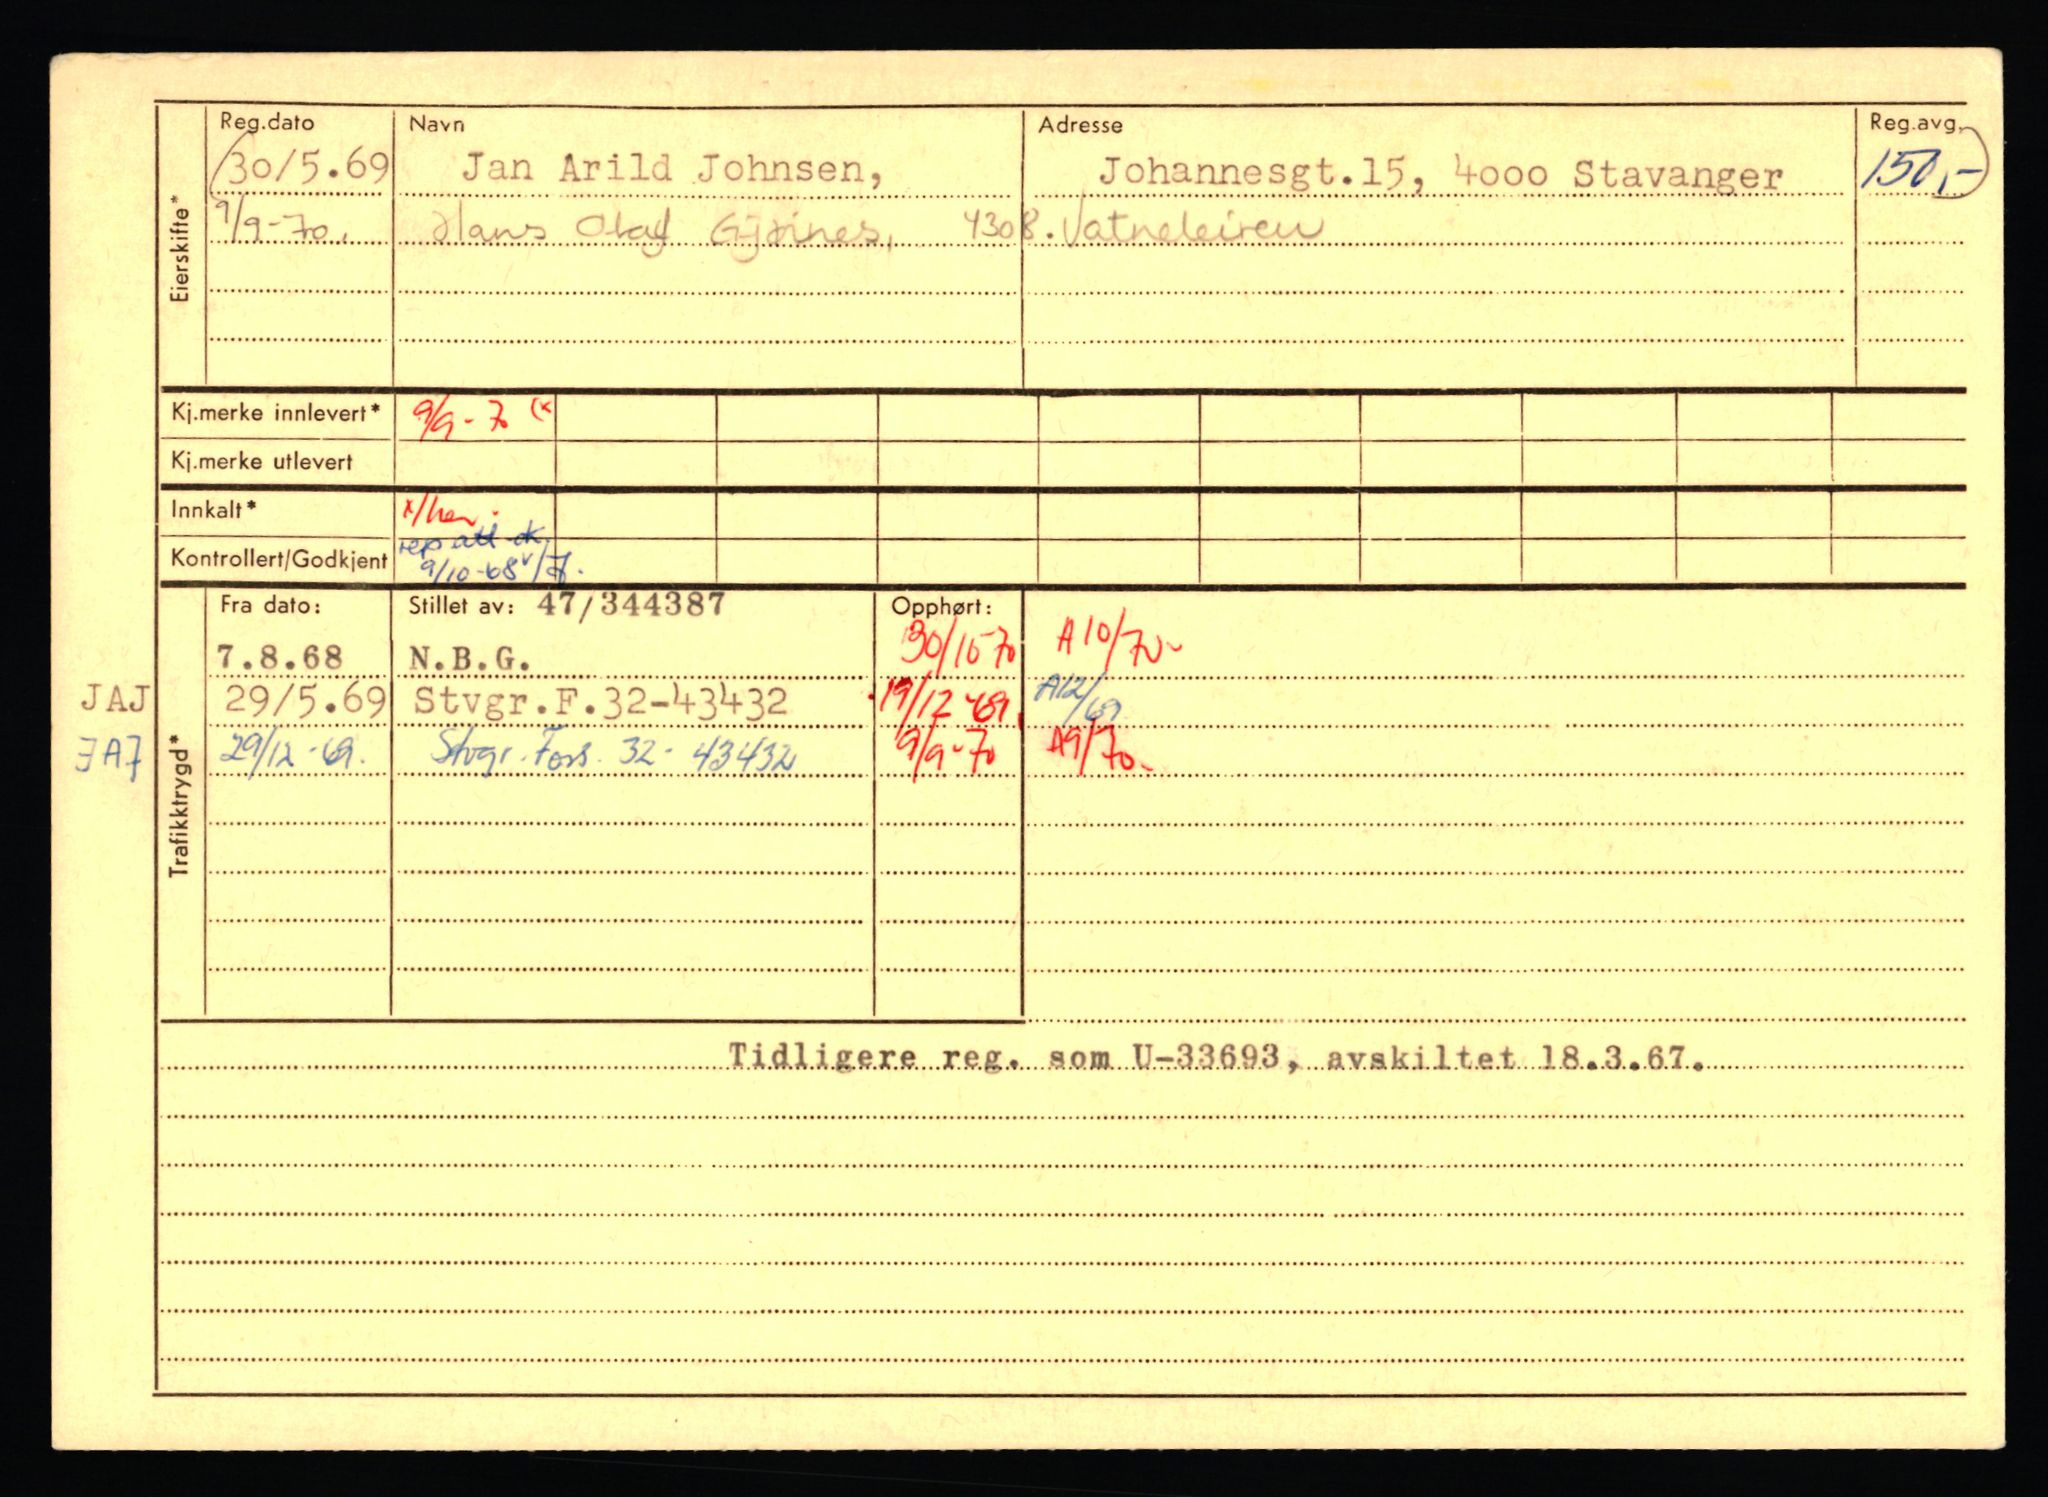 Reg.dato Navn Adresse Reg.avg.
30/5.69 Jan Arild Johnsen, Johannesgt.15, 4000 Stavanger 150,-
9/9-70. Hans Olaf 4308. Vatneleiren
Eierskifte*
Kj.merke innlevert* 9/9-70 (x
Kj.merke utlevert
Innkalt* x/her.
rep att ok
Kontrollert/Godkjent 9/10-68
Fra dato: Stillet av: 47/344387 Opphørt:
7.8.68 N.B.G. 30/10 70 A10/70-
JAJ 29/5.69 Stvgr.F.32-43432 19/12 69. A12/69
JAJ 29/12-69. Stvgr. Fors. 32-43432 9/9-70 A9/70-
Trafikktrygd*
Tidligere reg. som U-33693, avskiltet 18.3.67.